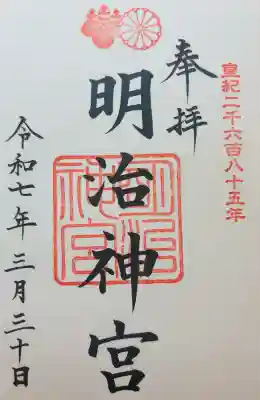 皇紀二千六百八十五年
奉拝
明治神宮
明治神宮
令和七年 三月三十日